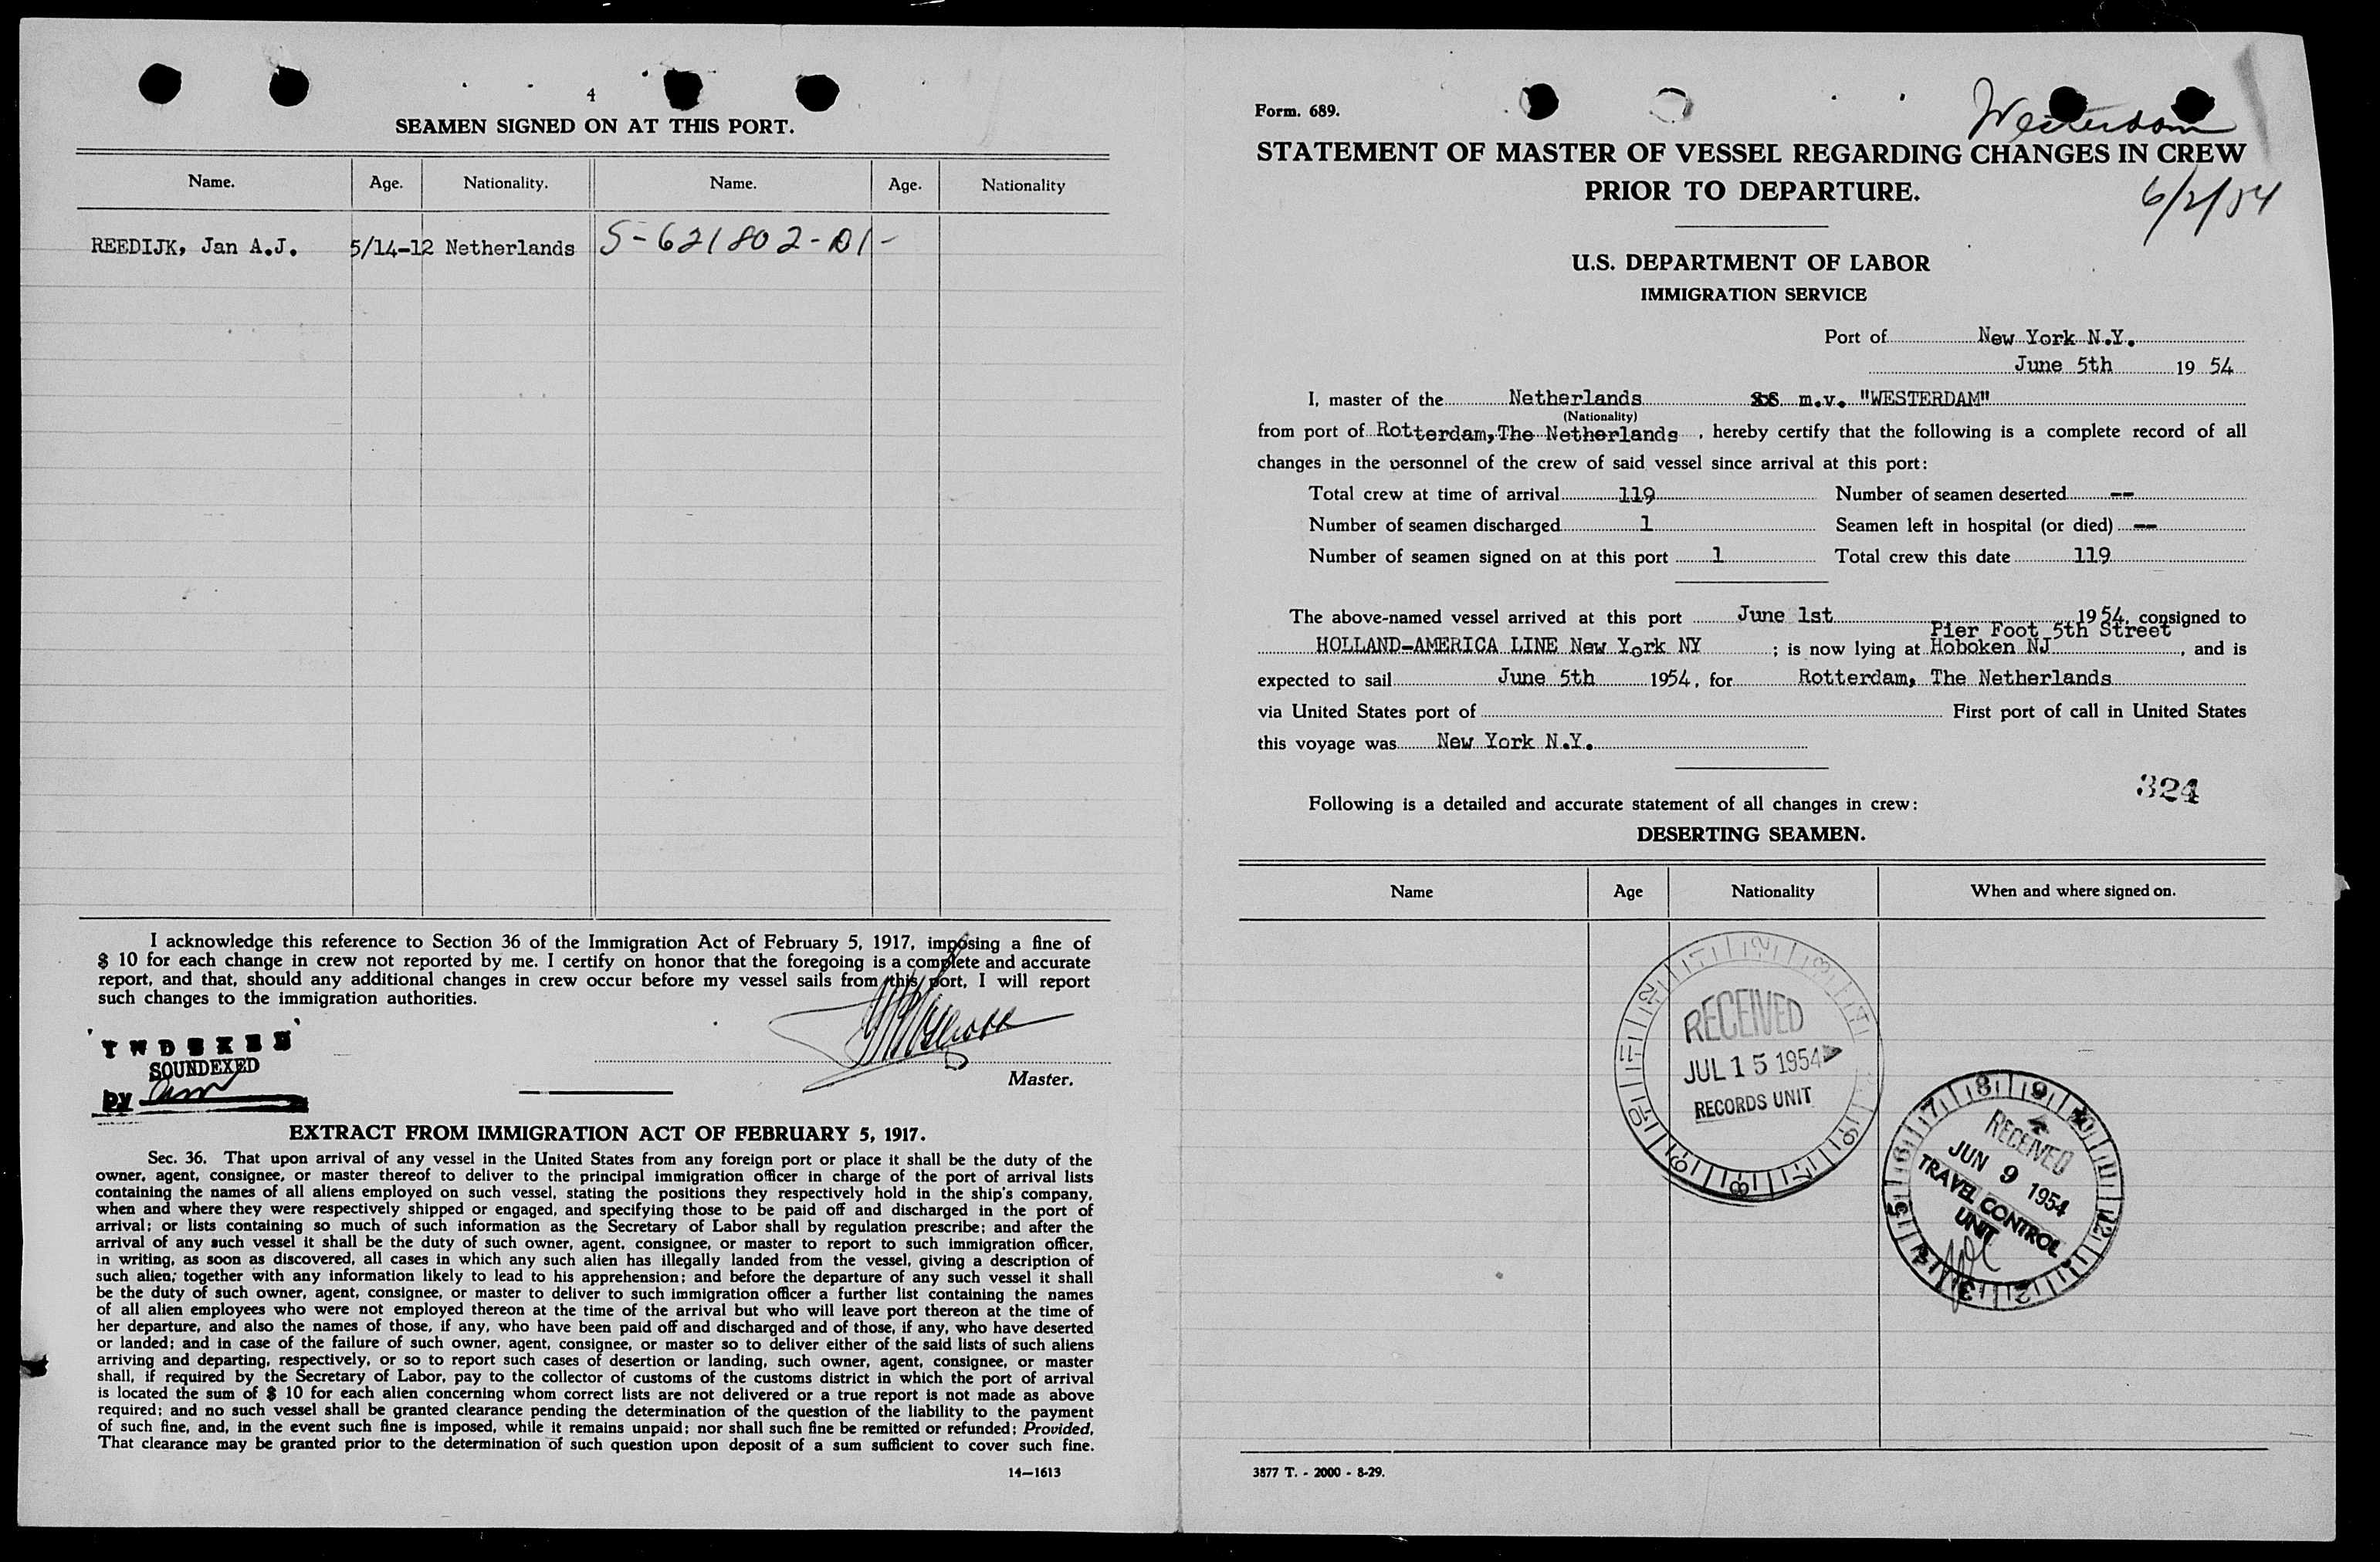 4
SEAMEN SIGNED ON AT THIS PORT.
Name. Age. Nationality. Name. Age. Nationality
REEDIJK, Jan A.J. 5/14-12 Netherlands S-621802-D1-
I acknowledge this reference to Section 36 of the Immigration Act of February 5, 1917, imposing a fine of
$ 10 for each change in crew not reported by me. I certify on honor that the foregoing is a complete and accurate
report, and that, should any additional changes in crew occur before my vessel sails from this port, I will report
such changes to the immigration authorities.
INDEXED
SOUNDEXED
by
Master.
EXTRACT FROM IMMIGRATION ACT OF FEBRUARY 5, 1917.
Sec. 36. That upon arrival of any vessel in the United States from any foreign port or place it shall be the duty of the
owner, agent, consignee, or master thereof to deliver to the principal immigration officer in charge of the port of arrival lists
containing the names of all aliens employed on such vessel, stating the positions they respectively hold in the ship's company,
when and where they were respectively shipped or engaged, and specifying those to be paid off and discharged in the port of
arrival; or lists containing so much of such information as the Secretary of Labor shall by regulation prescribe; and after the
arrival of any such vessel it shall be the duty of such owner, agent, consignee, or master to report to such immigration officer,
in writing, as soon as discovered, all cases in which any such alien has illegally landed from the vessel, giving a description of
such alien; together with any information likely to lead to his apprehension; and before the departure of any such vessel it shall
be the duty of such owner, agent, consignee, or master to deliver to such immigration officer a further list containing the names
of all alien employees who were not employed thereon at the time of the arrival but who will leave port thereon at the time of
her departure, and also the names of those, if any, who have been paid off and discharged and of those, if any, who have deserted
or landed; and in case of the failure of such owner, agent, consignee, or master so to deliver either of the said lists of such aliens
arriving and departing, respectively, or so to report such cases of desertion or landing, such owner, agent, consignee, or master
shall, if required by the Secretary of Labor, pay to the collector of customs of the customs district in which the port of arrival
is located the sum of $ 10 for each alien concerning whom correct lists are not delivered or a true report is not made as above
required; and no such vessel shall be granted clearance pending the determination of the question of the liability to the payment
of such fine, and, in the event such fine is imposed, while it remains unpaid; nor shall such fine be remitted or refunded; Provided,
That clearance may be granted prior to the determination of such question upon deposit of a sum sufficient to cover such fine.
14—1613
Form. 689.
Westerdam
STATEMENT OF MASTER OF VESSEL REGARDING CHANGES IN CREW
PRIOR TO DEPARTURE.
6/2/54
U.S. DEPARTMENT OF LABOR
IMMIGRATION SERVICE
Port of New York N.Y.
June 5th 19 54
I, master of the Netherlands SS m.v. "WESTERDAM"
(Nationality)
from port of Rotterdam, The Netherlands , hereby certify that the following is a complete record of all
changes in the personnel of the crew of said vessel since arrival at this port:
Total crew at time of arrival 119 Number of seamen deserted --
Number of seamen discharged 1 Seamen left in hospital (or died) --
Number of seamen signed on at this port 1 Total crew this date 119
The above-named vessel arrived at this port June 1st 1954, consigned to
Pier Foot 5th Street
HOLLAND-AMERICA LINE New York NY ; is now lying at Hoboken NJ , and is
expected to sail June 5th 1954, for Rotterdam, The Netherlands
via United States port of First port of call in United States
this voyage was New York N.Y.
324
Following is a detailed and accurate statement of all changes in crew:
DESERTING SEAMEN.
Name Age Nationality When and where signed on.
RECEIVED
JUL 15 1954
RECORDS UNIT
RECEIVED
JUN 9 1954
TRAVEL CONTROL
UNIT
3877 T. - 2000 - 8-29.